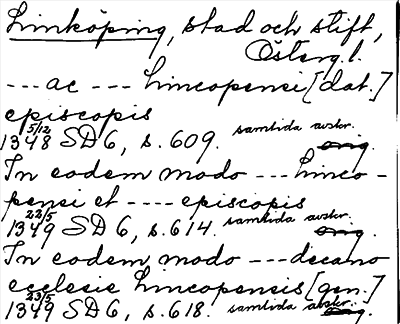 Linköping, stad och stift,
Österg.l.
--- ac --- Lincopensi [dat.]
episcopis
1348 5/12 SD 6, s. 609. samtida avskr. orig.
In eodem modo --- Linco-
pensi et ---- episcopis
1349 22/5 SD 6, s. 614. samtida avskr. orig.
In eodem modo --- decano
ecclesie Lincopensis [gen.]
1349 23/5 SD 6, s. 618. samtida avskr. orig.